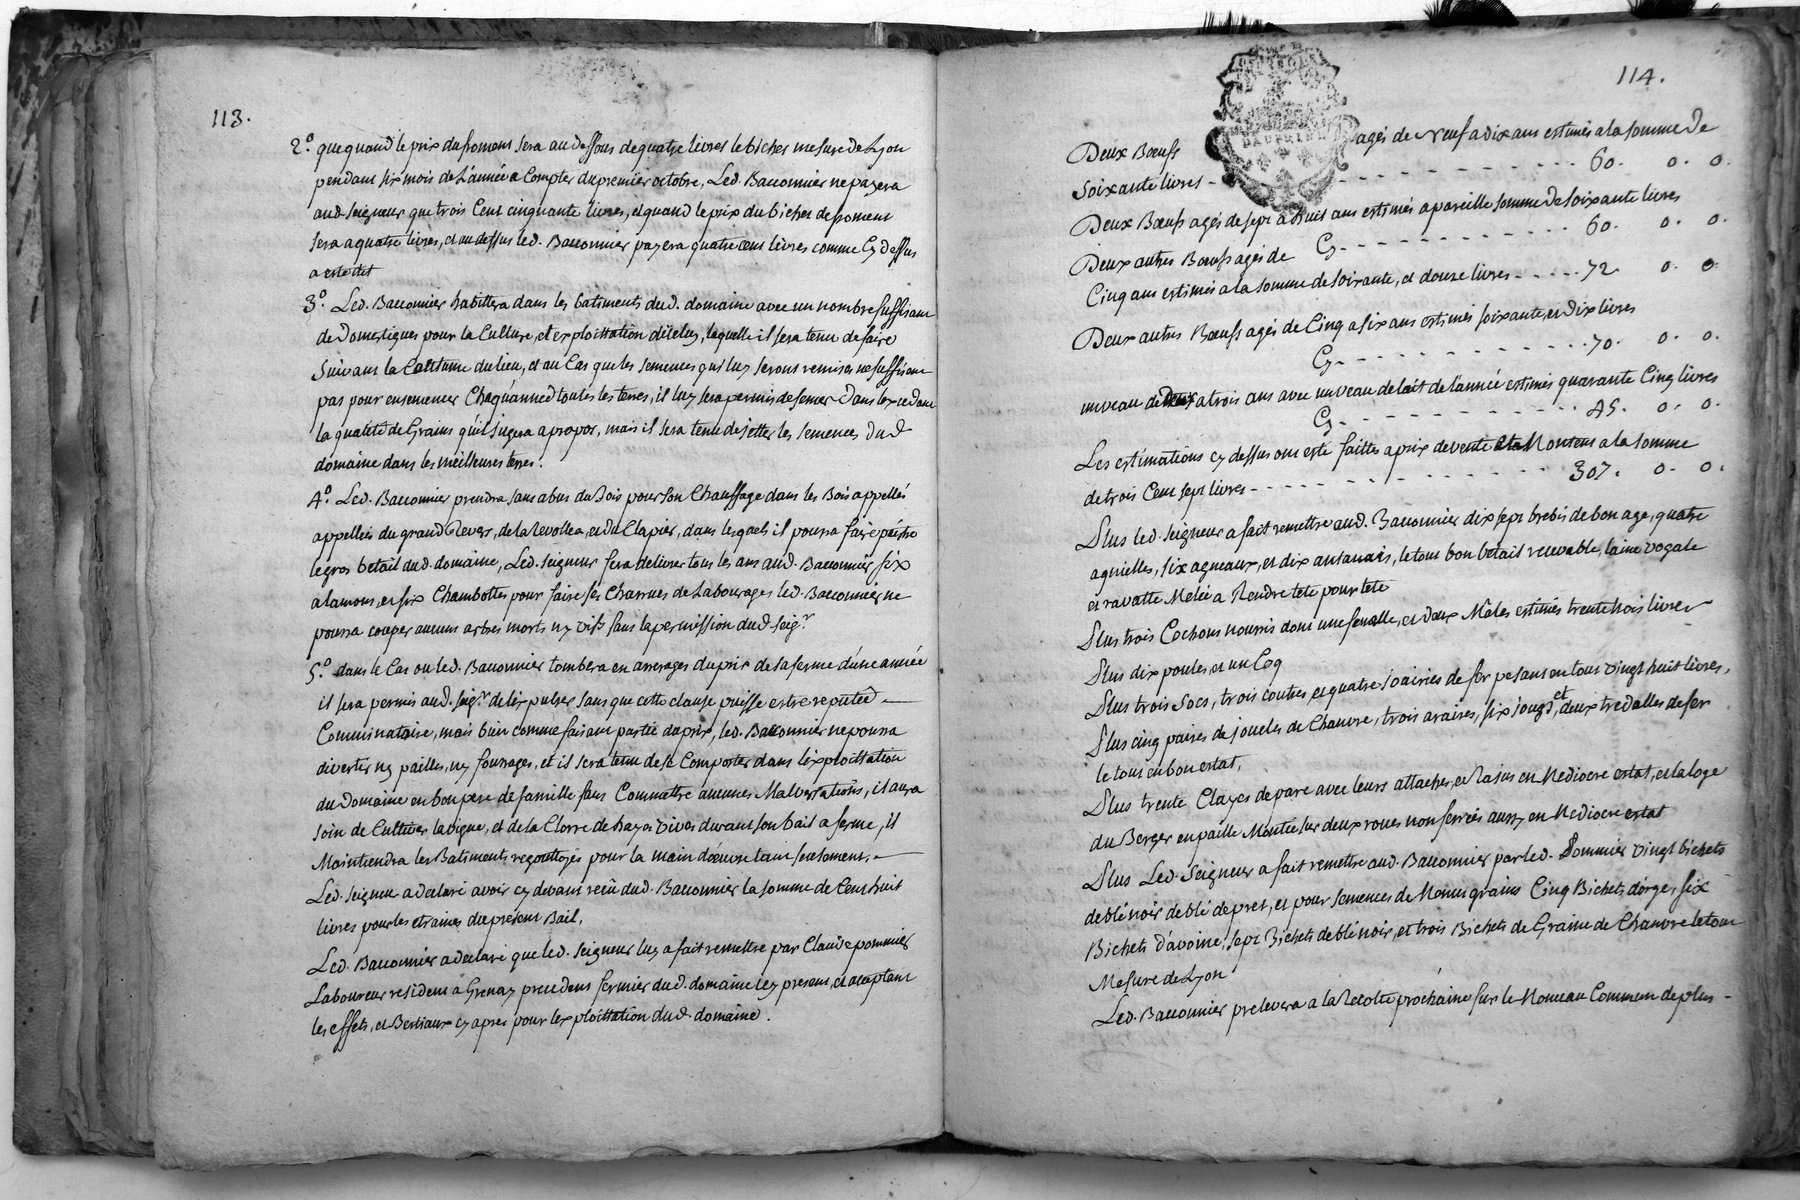 113.
2.° que quand le prix du froment sera au dessous de quatre livres le bichet mesure de Lyon
pendant six mois de L'année a Compter du premier octobre, Led. Bauonnier ne payera
aud. seigneur que trois Cent cinquante livres, et quand le prix du bichet de froment
sera a quatre livres, et au dessus led. Bauonnier payera quatre cent livres comme Cy dessus
a este dit
3.° Led. Bauonnier habittera dans les batiments dud. domaine avec un nombre suffisant
de Domestiques pour la Culture, et exploittation d'iceluy, laquelle il sera tenu de faire
suivant la Coutume du lieu, et au Cas que les semences qui luy seront remises ne suffisent
pas pour ensemencer Chaquanned toutes les terres, il luy sera permis de semer dans lexcedant
la quatité de Grains qu'il jugera apropos, mais il sera tenu de jetter les semences dud
domaine dans les meilleures terres.
4.° Led. Bauonnier prendra sans abus du bois pour son Chauffage dans les Bois appellés
appellés du grand Revers, de la Revollea, et du Clapier, dans lesquels il pourra faire paistre
le gros betail dud. domaine, Led. seigneur fera delivrer tous les ans aud. Bauonnier six
alamons, et six Chambottes pour faire ses Charrues de Labourages led. Bauonnier ne
pourra couper aucuns arbres morts ny vifs sans la permission dud. seigr
5.° dans le Cas ou led. Bauonnier tombera en arrerages du prix de sa ferme d'une année
il sera permis aud. seigr. de lexpulser sans que cette clause puisse estre reputée
Comminatoire, mais bien comme faisant partie du prix, led. Bauonnier ne pourra
divertir ny pailles, ny fourrages, et il sera tenu de se Comporter dans lexploittation
du Domaine en bon pere de famille sans Commettre aucunes Malversations, il aura
soin de Cultiver la vigne, et de la Clorre de hayes vives durant son bail a ferme, il
Maintiendra les Batiments regouttoyés pour la main d'oeuvre tant seulement.
Led. seigneur a declaré avoir cy devant reçû dud. Bauonnier la somme de Cent huit
livres pour les etraines du present Bail,
Led. Bauonnier a declaré que led. seigneur luy a fait remettre par Claude pommier
Laboureur resident a Grenay precedent fermier dud. domaine Icy present, et acceptant
les effets, et Bestiaux cy apres pour lexploittation dud. domaine.
114.
DAUPHINÉ
Deux Bœufs agés de neuf a dix ans estimés a la somme de
soixante livres - - - 60. 0. 0.
Deux Bœufs agés de sept a huit ans estimés a pareille somme de soixante livres
Cy - - - 60. 0. 0.
Deux autres Bœufs agés de
Cinq ans estimés a la somme de soixante, et douze livres - - - 72. 0. 0.
Deux autres Bœufs agés de Cinq a six ans estimés soixante, et dix livres
Cy - - - 70. 0. 0.
un veau de deux a trois ans avec un veau de lait de l'année estimés quarante Cinq livres
Cy - - - 45. 0. 0.
Les estimations cy dessus ont esté faittes a prix de vente Montent a la somme
de trois Cent sept livres - - - 307. 0. 0.
Plus led. seigneur a fait remettre aud. Bauonnier dix sept brebis de bon age, quatre
agnelles, six agneaux, et dix ansanais, le tout bon betail recevable, laine vogale
et ravatte Melée a Rendre tete pour tete
Plus trois Cochons nourris dont une femelle, et deux Mâles estimés trente trois livres
Plus dix poules et un Coq
Plus trois Socs, trois coutres, et quatre soairies de fer pesant en tout vingt huit livres,
Plus cinq paires de joucles de Chanvre, trois araires, six jougs, et deux tredalles de fer
le tout en bon estat,
Plus trente Clayes de parc avec leurs attaches, et en Mediocre estat, et la loge
du Berger en paille Montée sur deux roues non ferrées aussy en Mediocre estat
Plus Led. Seigneur a fait remettre aud. Bauonnier par led. Pommier vingt bichets
de blé noir de blé de pret, et pour semences de Menus grains Cinq Bichets d'orge, six
Bichets d'avoine, sept Bichets de blé noir, et trois Bichets de Graine de Chanvre le tout
Mesure de Lyon
Led. Bauonnier prelevera a la Recolte prochaine sur le Monceau Commun de plus -